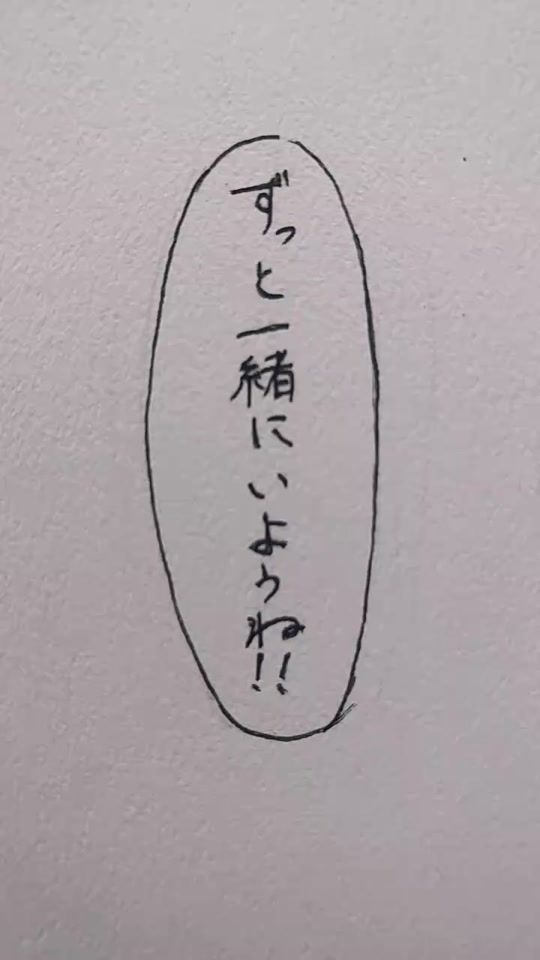 ずっと一緒にいようね!!